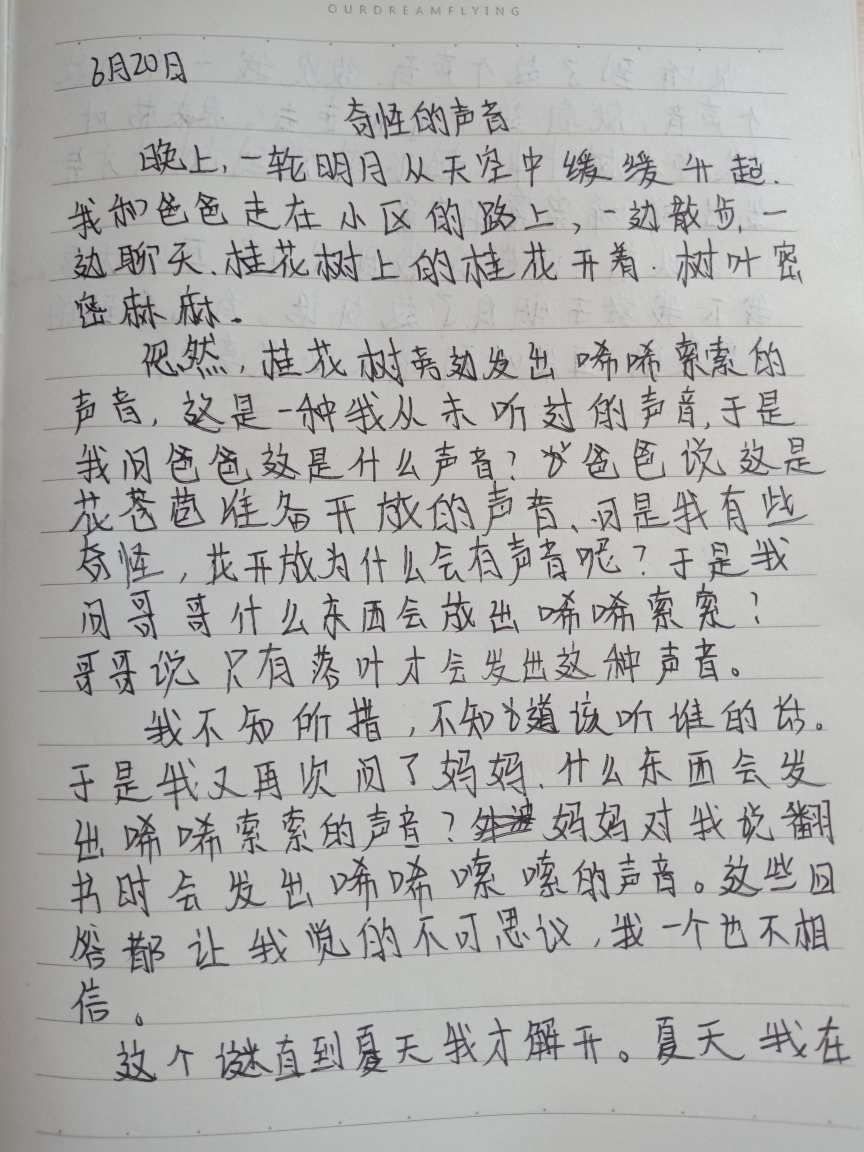 OURDREAMFLYING
6月20日
奇怪的声音
晚上,一轮明月从天空中缓缓升起.
我和爸爸走在小区的路上,一边散步,一
边聊天.桂花树上的桂花开着.树叶密
密麻麻。
忽然,桂花树旁边发出唏唏索索的
声音,这是一种我从未听过的声音,于是
我问爸爸这是什么声音?爸爸说这是
花苞准备开放的声音、可是我有些
奇怪,花开放为什么会有声音呢?于是我
问哥哥什么东西会放出唏唏索索?
哥哥说只有落叶才会发出这种声音。
我不知所措,不知道该听谁的话。
于是我又再次问了妈妈.什么东西会发
出唏唏索索的声音?妈妈对我说翻
书时会发出唏唏嗦嗦的声音。这些回
答都让我觉的不可思议,我一个也不相
信。
这个谜直到夏天我才解开。夏天我在